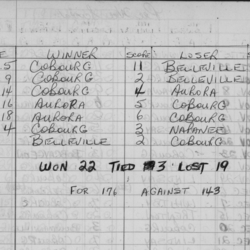 WINNER SCORE LOSER
5 COBOURG 11 BELLEVILLE
9 COBOURG 2 BELLEVILLE
14 COBOURG 4 AURORA
16 AURORA 5 COBOURG
18 AURORA 6 COBOURG
4 COBOURG 3 NAPANEE
BELLEVILLE 2 COBOURG
WON 22 TIED 3 LOST 19
FOR 176 AGAINST 143